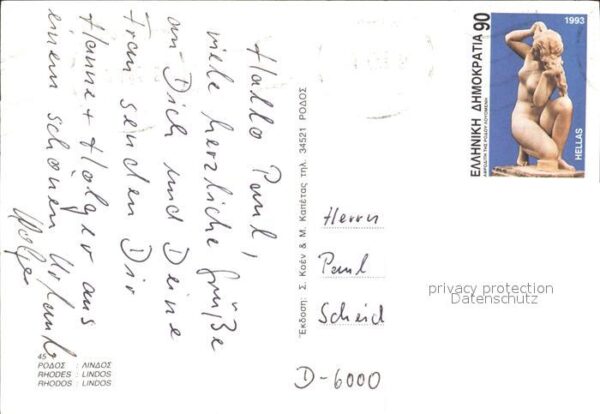 Hallo Paul,
viele herzliche Grüße
an Dich und Deine
Frau senden Dir
Hanne + Holger aus
einem schönen Urlaub
Holger
45
ΡΟΔΟΣ : ΛΙΝΔΟΣ
RHODES : LINDOS
RHODOS : LINDOS
Έκδοση Σ. Κοέν & Μ. Καπέτας τηλ. 34521 ΡΟΔΟΣ
ΕΛΛΗΝΙΚΗ ΔΗΜΟΚΡΑΤΙΑ 90
ΑΦΡΟΔΙΤΗ ΤΗΣ ΡΟΔΟΥ ΛΟΥΟΜΕΝΗ
1993
HELLAS
Herrn
Paul
Scheid
privacy protection
Datenschutz
D-6000